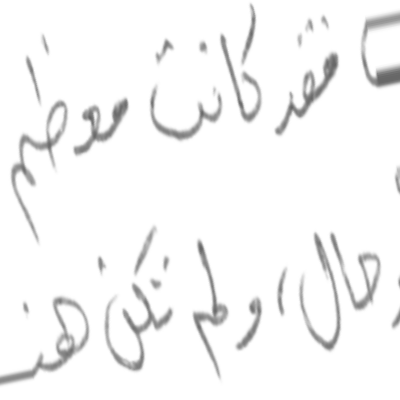 فقد كانت معظم
حال، ولم تكن هنـ